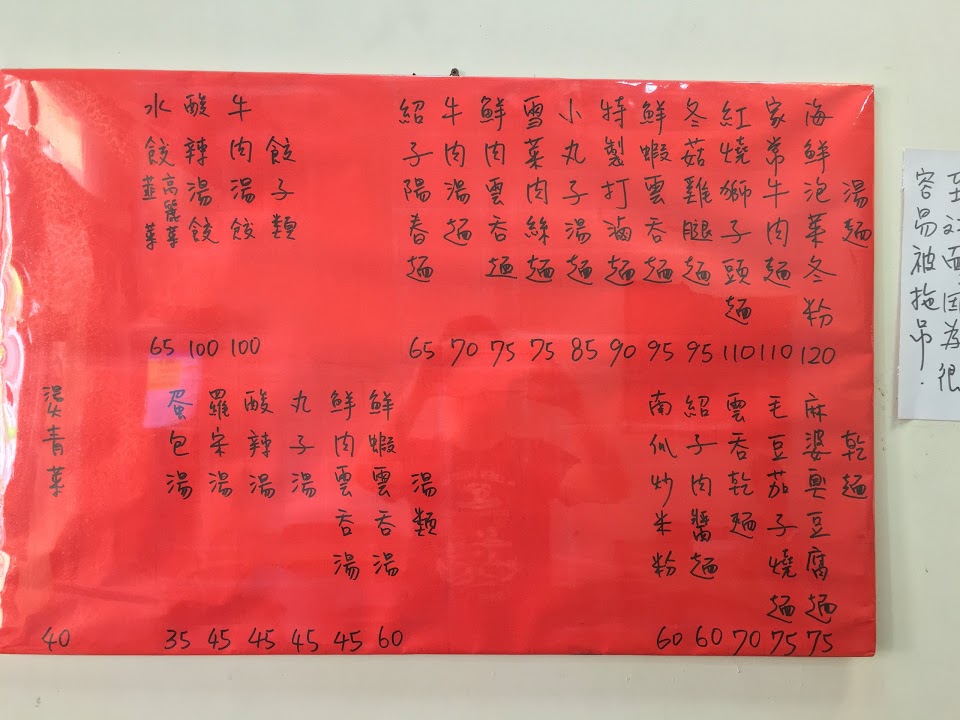 湯麵
海鮮泡菜冬粉 120
家常牛肉麵 110
紅燒獅子頭麵 110
冬菇雞腿麵 95
鮮蝦雲吞麵 95
特製打滷麵 90
小丸子湯麵 85
雪菜肉絲麵 75
鮮肉雲吞麵 75
牛肉湯麵 70
紹子陽春麵 65
餃子類
牛肉湯餃 100
酸辣湯餃 100
水餃 高麗菜 韮菜 65
乾麵
麻婆臭豆腐麵 75
毛豆茄子燒麵 75
雲吞乾麵 70
紹子肉醬麵 60
南瓜炒米粉 60
湯類
鮮蝦雲吞湯 60
鮮肉雲吞湯 45
丸子湯 45
酸辣湯 45
羅宋湯 45
蛋包湯 35
燙青菜 40
容易被拖吊.